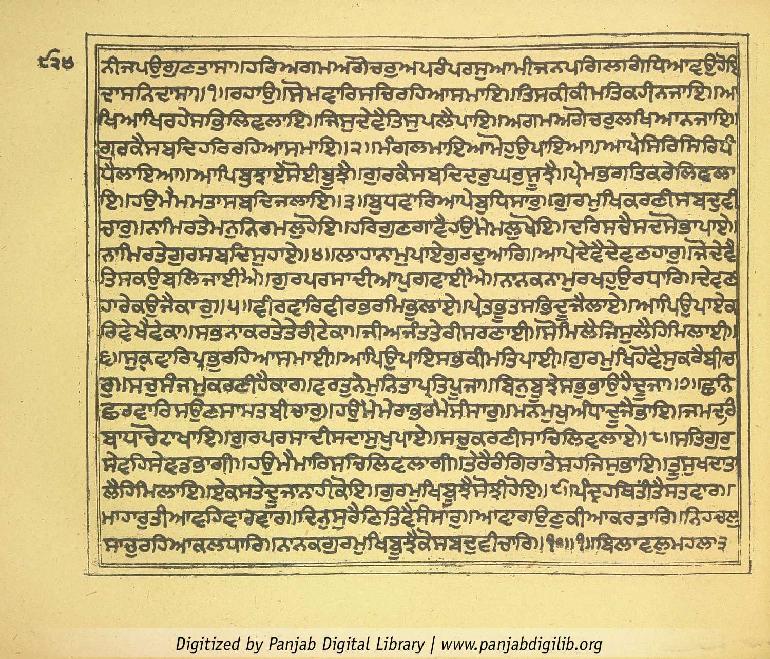 ਨੀਜਪਉਗੁਣਤਾਸਾ॥ਹਰਿਅਗਮਅਗੋਚਰੁਅਪਰੰਪਰਸੁਆਮੀਜਨਪਗਿਲਗਿਧਿਆਵਉਹੋਇ
ਦਾਸਨਿਦਾਸਾ॥੧॥ਰਹਾਉ॥ਸੋਮਵਾਰਿਸਚਿਰਹਿਆਸਮਾਇ॥ਤਿਸਕੀਕੀਮਤਿਕਹੀਨਜਾਇ॥ਆ
ਖਿਆਖਿਰਹੇਸਭਿਲਿਵਲਾਇ॥ਜਿਸੁਦੇਵੈਤਿਸੁਪਲੈਪਾਇ॥ਅਗਮਅਗੋਚਰੁਲਖਿਆਨਜਾਇ॥
ਗੁਰਕੈਸਬਦਿਹਰਿਰਹਿਆਸਮਾਇ॥੨॥ਮੰਗਲਮਾਇਆਮੋਹੁਉਪਾਇਆ॥ਆਪੇਸਿਰਿਸਿਰਿਧੰ
ਧੈਲਾਇਆ॥ਆਪਿਬੁਝਾਏਸੋਈਬੂਝੈ॥ਗੁਰਕੈਸਬਦਿਦਰੁਘਰੁਸੂਝੈ॥ਪ੍ਰੇਮਭਗਤਿਕਰੇਲਿਵਲਾ
ਇ॥ਹਉਮੈਮਮਤਾਸਬਦਿਜਲਾਇ॥੩॥ਬੁਧਵਾਰਿਆਪੇਬੁਧਿਸਾਰੁ॥ਗੁਰਮੁਖਿਕਰਣੀਸਬਦੁਵੀ
ਚਾਰੁ॥ਨਾਮਿਰਤੇਮਨੁਨਿਰਮਲੁਹੋਇ॥ਹਰਿਗੁਣਗਾਵੈਹਉਮੈਮਲੁਖੋਇ॥ਦਰਿਸਚੈਸਦਸੋਭਾਪਾਏ॥
ਨਾਮਿਰਤੇਗੁਰਸਬਦਿਸੁਹਾਏ॥੪॥ਲਾਹਾਨਾਮੁਪਾਏਗੁਰਦੁਆਰਿ॥ਆਪੇਦੇਵੈਦੇਵਣਹਾਰੁ॥ਜੋਦੇਵੈ
ਤਿਸਕਉਬਲਿਜਾਈਐ॥ਗੁਰਪਰਸਾਦੀਆਪੁਗਵਾਈਐ॥ਨਾਨਕਨਾਮੁਰਖਹੁਉਰਧਾਰਿ॥ਦੇਵਣ
ਹਾਰੇਕਉਜੈਕਾਰੁ॥੫॥ਵੀਰਵਾਰਿਵੀਰਭਰਮਿਭੁਲਾਏ॥ਪ੍ਰੇਤਭੂਤਸਭਿਦੂਜੈਲਾਏ॥ਆਪਿਉਪਾਏਕ
ਰਿਵੇਖੈਵੇਕਾ॥ਸਭਨਾਕਰਤੇਤੇਰੀਟੇਕਾ॥ਜੀਅਜੰਤਤੇਰੀਸਰਣਾਈ॥ਸੋਮਿਲੈਜਿਸੁਲੈਹਿਮਿਲਾਈ॥
੬॥ਸੁਕ੍ਰਵਾਰਿਪ੍ਰਭੁਰਹਿਆਸਮਾਈ॥ਆਪਿਉਪਾਇਸਭਕੀਮਤਿਪਾਈ॥ਗੁਰਮੁਖਿਹੋਵੈਸੁਕਰੈਬੀਚਾ
ਰੁ॥ਸਚੁਸੰਜਮੁਕਰਣੀਹੈਕਾਰ॥ਵਰਤੁਨੇਮੁਨਿਤਾਪ੍ਰਤਿਪੂਜਾ॥ਬਿਨੁਬੂਝੇਸਭੁਭਾਉਹੈਦੂਜਾ॥੭॥ਛਨਿ
ਛਰਵਾਰਿਸਉਣਸਾਸਤਬੀਚਾਰੁ॥ਹਉਮੈਮੇਰਾਭਰਮੈਸੰਸਾਰੁ॥ਮਨਮੁਖੁਅੰਧਾਦੂਜੈਭਾਇ॥ਜਮਦਰਿ
ਬਾਧਾਚੋਟਾਖਾਇ॥ਗੁਰਪਰਸਾਦੀਸਦਾਸੁਖੁਪਾਏ॥ਸਚੁਕਰਣੀਸਾਚਿਲਿਵਲਾਏ॥੮॥ਸਤਿਗੁਰੁ
ਸੇਵਹਿਸੇਵਡਭਾਗੀ॥ਹਉਮੈਮਾਰਿਸਚਿਲਿਵਲਾਗੀ॥ਤੇਰੈਰੰਗਿਰਾਤੇਸਹਜਿਸੁਭਾਇ॥ਤੂਸੁਖਦਾਤਾ
ਲੈਹਿਮਿਲਾਇ॥ਏਕਸਤੇਦੂਜਾਨਾਹੀਕੋਇ॥ਗੁਰਮੁਖਿਬੂਝੈਸੋਝੀਹੋਇ॥੯॥ਪੰਦ੍ਰਹਥਿਤੰੀਤੈਸਤਵਾਰ॥
ਮਾਹਾਰੁਤੀਆਵਹਿਵਾਰਵਾਰ॥ਦਿਨਸੁਰੈਣਿਤਿਵੈਸੰਸਾਰੁ॥ਆਵਾਗਉਣੁਕੀਆਕਰਤਾਰਿ॥ਨਿਹਚਲੁ
ਸਾਚੁਰਹਿਆਕਲਧਾਰਿ॥ਨਾਨਕਗੁਰਮੁਖਿਬੂਝੈਕੋਸਬਦੁਵੀਚਾਰਿ॥੧੦॥੧॥ਬਿਲਾਵਲੁਮਹਲਾ੩
Digitized by Panjab Digital Library | www.panjabdigilib.org